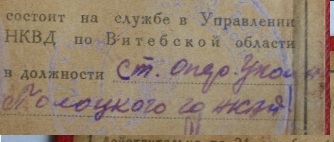 состоит на службе в Управлении
НКВД по Витебской области
в должности ст. опер. упол
Полоцкого го нквд